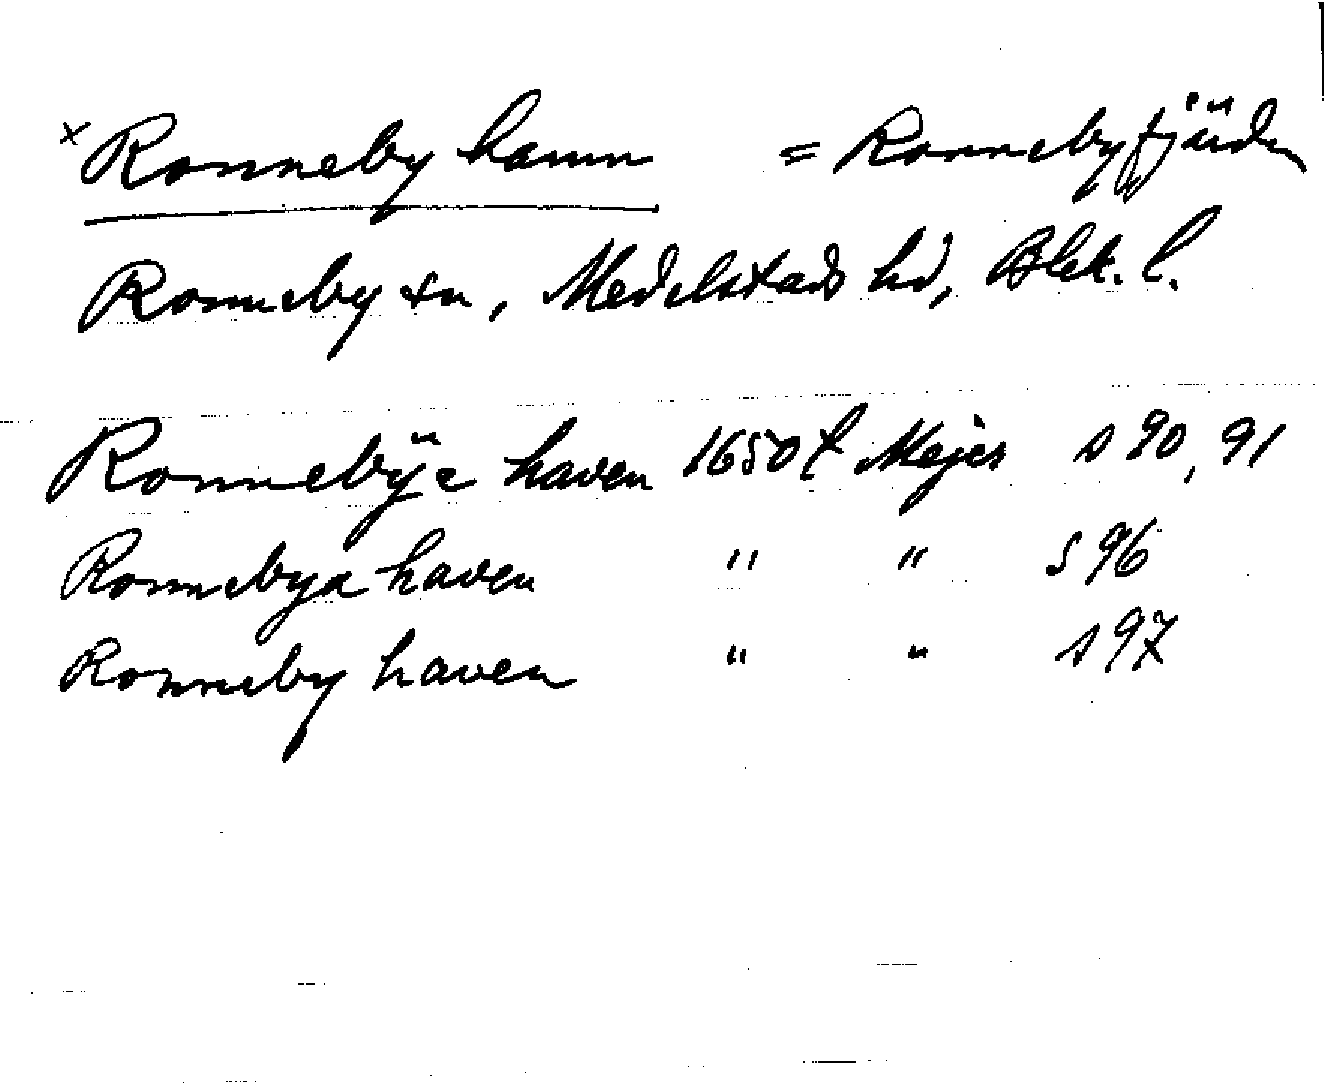 × Ronneby hamn = Ronnebyfjärden
Ronneby sn, Medelstads hd, Blek. l.
Ronnebÿe haven 1650 t Mejer s 90, 91
Ronnebya haven " " s 96
Ronneby haven " " s 97